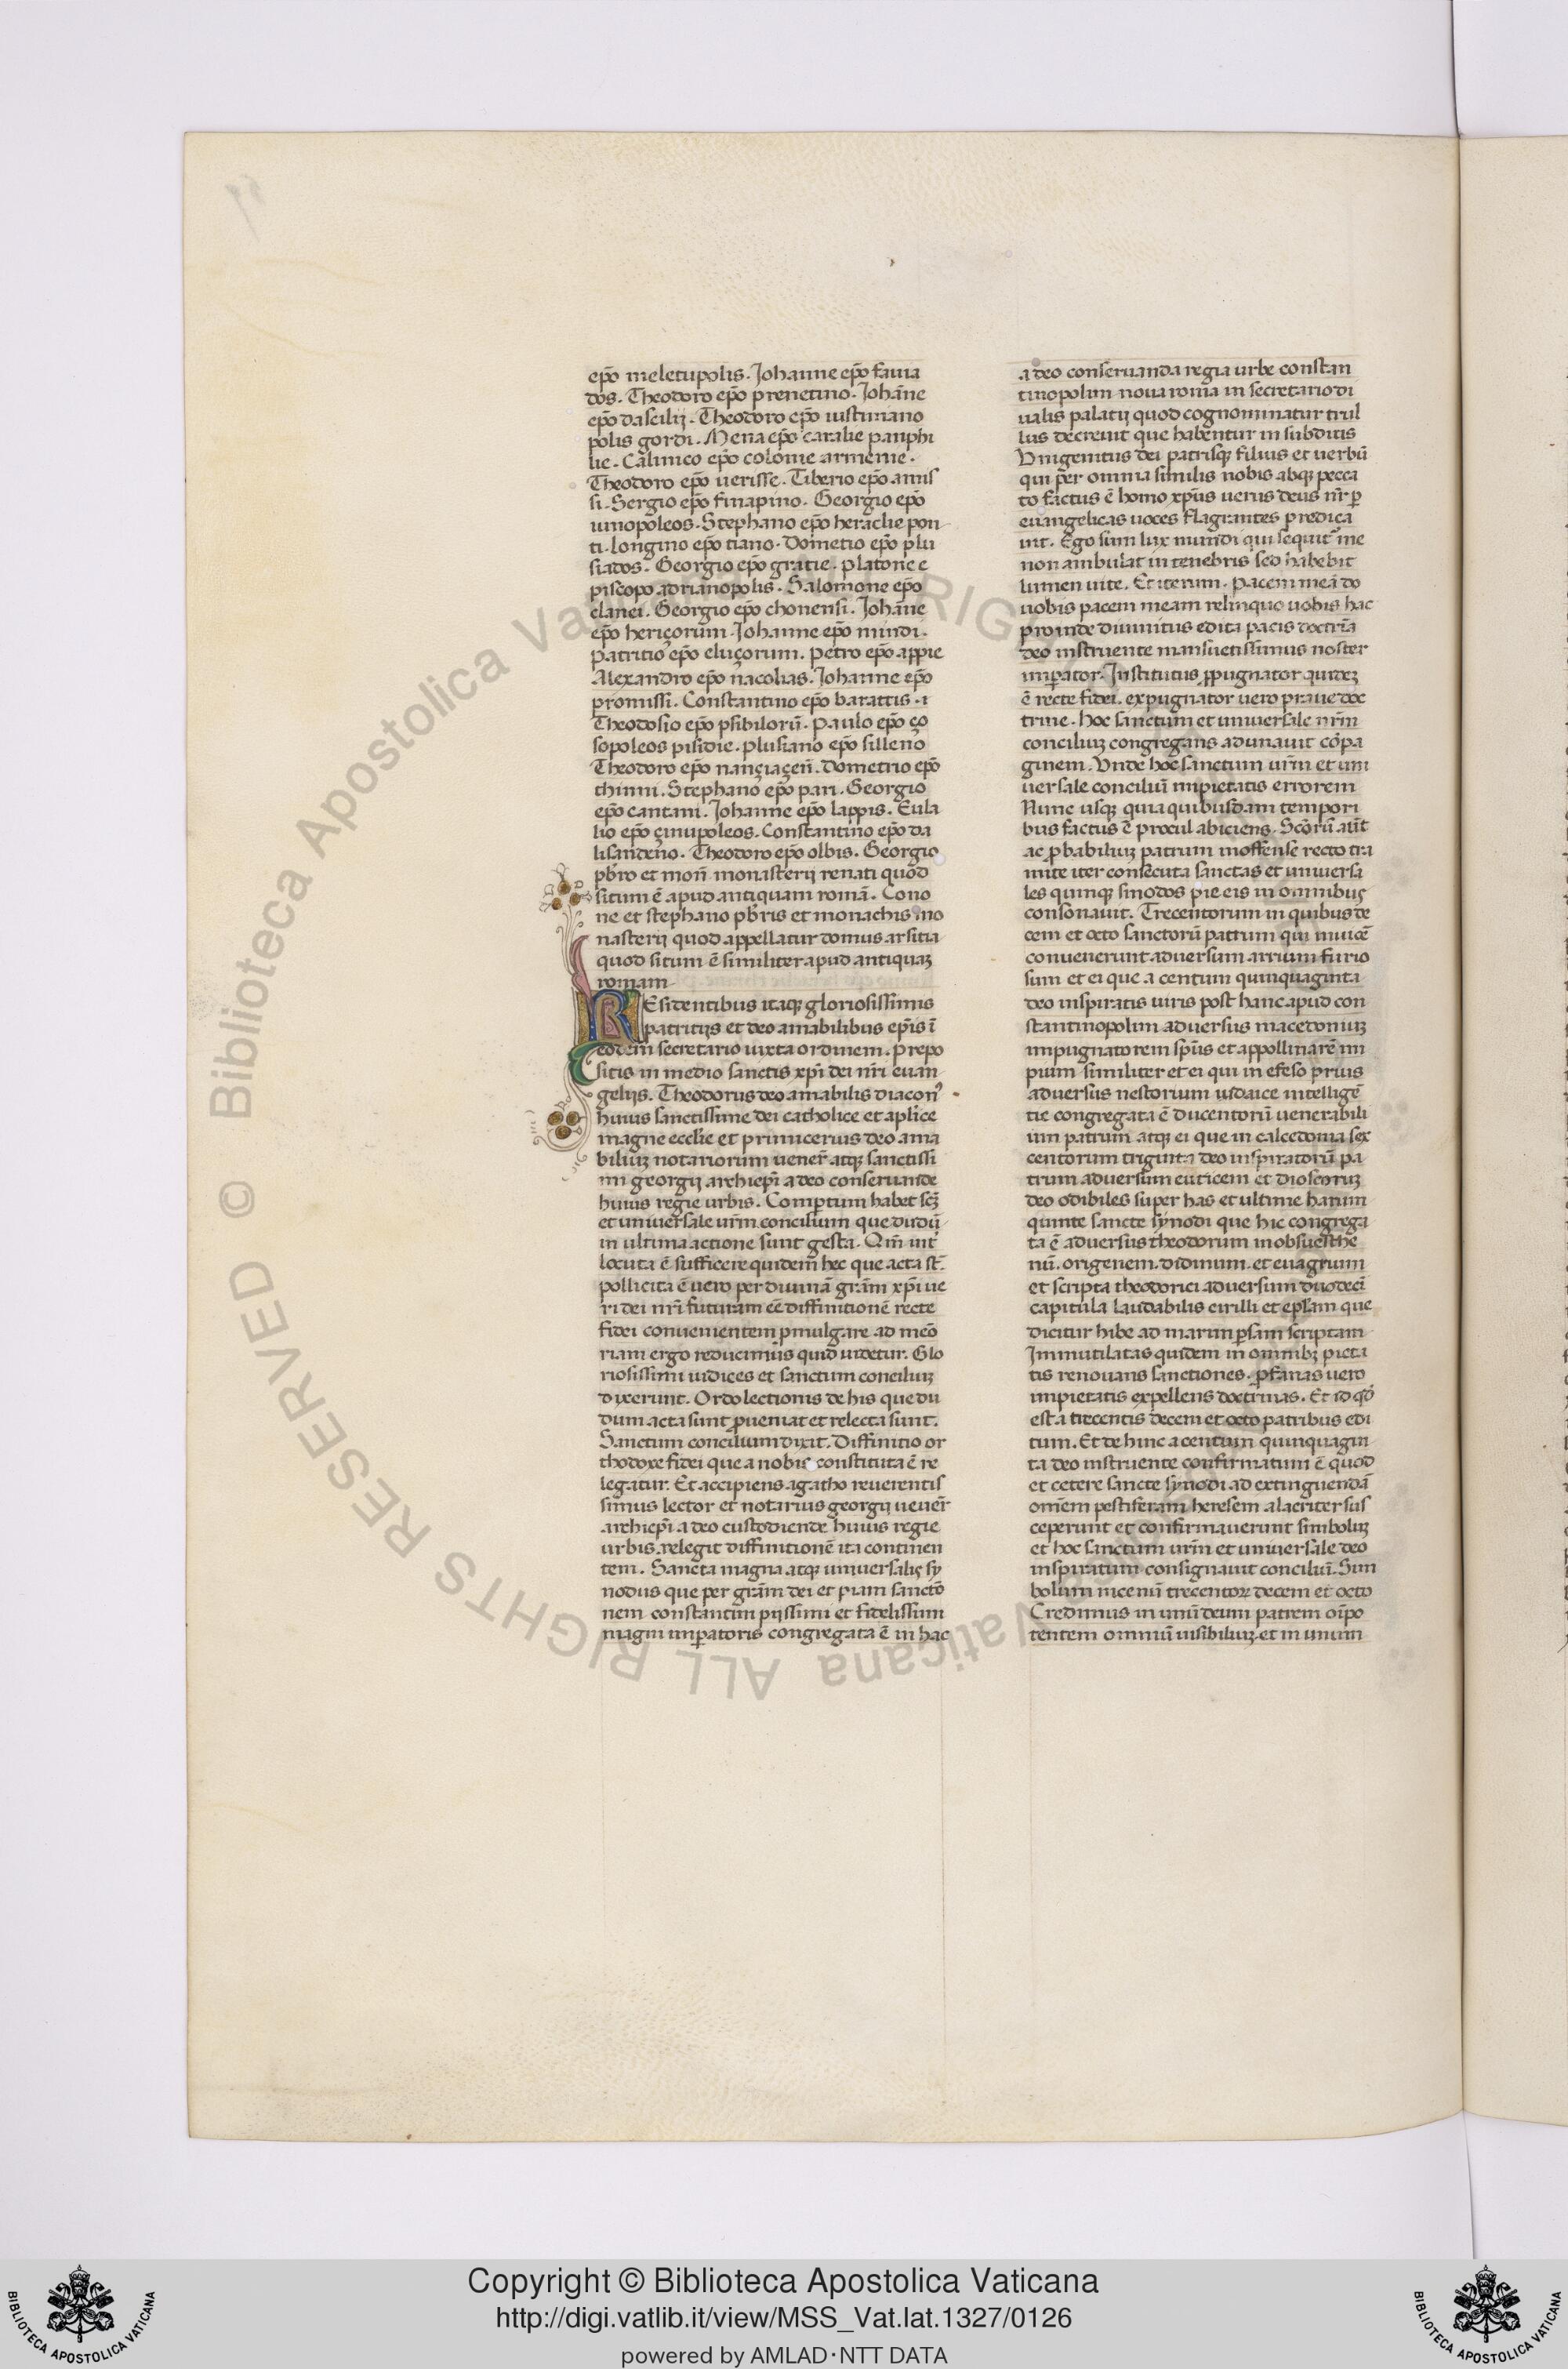 ep̄o meletupolis. Johanne ep̄o fauia
dos. Theodoro ep̄o prenetino. Johāne
ep̄o dascilij. Theodoro ep̄o iustiniano
polis gordi. Mena ep̄o caralie panphi
lie. Calinico ep̄o colonie armenie.
Theodoro ep̄o uerisse. Tiberio ep̄o amis
si. Sergio ep̄o sinapino. Georgio ep̄o
iunopoleos. Stephano ep̄o heraclie pon
ti. longino ep̄o tiano. Dometio ep̄o plu
siados. Georgio ep̄o gratie. platone e
piscopo adrianopolis. Salomone ep̄o
clanei. Georgio ep̄o chonensi. Johāne
ep̄o heriçorum. Johanne ep̄o mindi.
patritio ep̄o eluçorum. petro ep̄o appie
Alexandro ep̄o nacolias. Johanne ep̄o
promissi. Constantino ep̄o barattis. i
Theodosio ep̄o psibilorū. paulo ep̄o ço
sopoleos pisidie. plusiano ep̄o silleno
Theodoro ep̄o nançiaçen̄. Dometrio ep̄o
thinni. Stephano ep̄o pari. Georgio
ep̄o cantani. Johanne ep̄o lappis. Eula
lio ep̄o çinupoleos. Constantino ep̄o da
lisandeno. Theodoro ep̄o olbis. Georgio
pb̄ro et mon̄ monasterij renati quod
situm ē apud antiquam romā. Cono
ne et stephano pb̄ris et monachis mo
nasterij quod appellatur domus arsitia
quod situm ē similiter apud antiquaȝ
romam
REsidentibus itaqȝ gloriosissimis
patritijs et deo amabilibus ep̄is ī
eodem secretario iuxta ordinem. prepo
sitis in medio sanctis xp̄i dei nr̄i euan
gelijs. Theodorus deo amabilis diacon9
huius sanctissime dei catholice et apl̄ice
magne eccl̄ie et primicerius deo ama
biliuȝ notariorum uener̄ atqȝ sanctissi
mi georgij archiep̄i a deo conseruande
huius regie urbis. Comp̱tum habet sc̄ȝ
et uniuersale ur̄m concilium que dudū
in ultima actione sunt gesta. Qm̄ uit
locuta ē sufficere quidem hec que acta st̄.
pollicita ē uero per diuinā gr̄am xp̄i ue
ri dei nr̄i futuram eē diffinitionē recte
fidei conuenientem p̱mulgare ad memō
riam ergo reducimus quid uidetur. Glo
riosissimi iudices et sanctum conciliuȝ
dixerunt. Ordo lectionis de his que du
dum acta sunt p̱ueniat et relecta sunt.
Sanctum concilium dixit. Diffinitio or
thodoxe fidei que a nobis constituta ē re
legatur. Et accipiens agatho reuerentis
simus lector et notarius georgij uener̄
archiep̄i a deo custodiende huius regie
urbis. relegit diffinitionē ita continen
tem. Sancta magna atqȝ uniuersalis sy
nodus que per gr̄am dei et piam sanctō
nem constantini pijssimi et fidelissimi
magni imp̱atoris congregata ē in hac
a deo conseruanda regia urbe constan
tinopolim noua roma in secretario di
ualis palatij quod cognominatur trul
lus decreuit que habentur in subditis
Unigenitus dei patrisqȝ filius et uerbū
qui per omnia similis nobis absqȝ pecca
to factus ē homo xp̄us uerus deus nr̄ p̱
euangelicas uoces flagrantes predica
uit. Ego sum lux mundi qui sequit᷑ me
non ambulat in tenebris sed habebit
lumen uite. Et iterum. pacem meā do
uobis pacem meam relinquo uobis hac
proinde diuinitus edita pacis doctrīa
deo instruente mansuetissimus noster
imp̱ator. Institutus p̱pugnator quidez
ē recte fidei. expugnator uero praue doc
trine. hoc sanctum et uniuersale nr̄m
conciliuȝ congregans adunauit cōpa
ginem. Unde hoc sanctum ur̄m et uni
uersale conciliū impietatis errorem
Nunc usqȝ quia quibusdam tempori
bus factus ē procul abiciens. Sc̄orū aūt
ac p̱babiliuȝ patrum inoffense recto tra
mite iter consecuta sanctas et uniuersa
les quinqȝ sinodos pie eis in omnibuȝ
consonauit. Trecentorum in quibus de
cem et octo sanctorū patrum qui inuicē
conuenerunt aduersum arrium furio
sum et ei que a centum quinquaginta
deo inspiratis uiris post hanc apud con
stantinopolim aduersus macedoniuȝ
impugnatorem sp̄us et appollinarē im
pium similiter et ei qui in efeso prius
aduersus nestorium iudaice intelligē
tie congregata ē ducentorū uenerabili
um patrum atqȝ ei que in calcedonia sex
centorum triginta deo inspiratorū pa
trum aduersum euticem et dioscoruȝ
deo odibiles super has et ultime harum
quinte sancte synodi que hic congrega
ta ē aduersus theodorum mobsuesthe
nū. origenem. didimum. et euagrium
et scripta theodorici aduersum duodeci
capitula laudabilis cirilli et ep̄lam que
dicitur hibe ad marim p̱sam scriptam
Immutilatas quidem in omnibȝ pieta
tis renouans sanctiones. p̱fanas uero
impietatis expellens doctrinas. Et id qd̄
est a trecentis decem et octo patribus edi
tum. Et de hinc a centum quinquagin
ta deo instruente confirmatum ē quod
et cetere sancte synodi ad extinguendā
omēm pestiferam heresem alacriter sus
ceperunt et confirmauerunt simboluȝ
et hoc sanctum ur̄m et uniuersale deo
inspiratum consignauit conciliū. Sim
bolum nicenū trecentoꝝ decem et octo
Credimus in unū deum patrem oīpo
tentem omniū uisibiliuȝ et in unum
Copyright © Biblioteca Apostolica Vaticana
http://digi.vatlib.it/view/MSS_Vat.lat.1327/0126
powered by AMLAD·NTT DATA
BIBLIOTECA APOSTOLICA VATICANA
BIBLIOTECA APOSTOLICA VATICANA
© Biblioteca Apostolica Vaticana ALL RIGHTS RESERVED